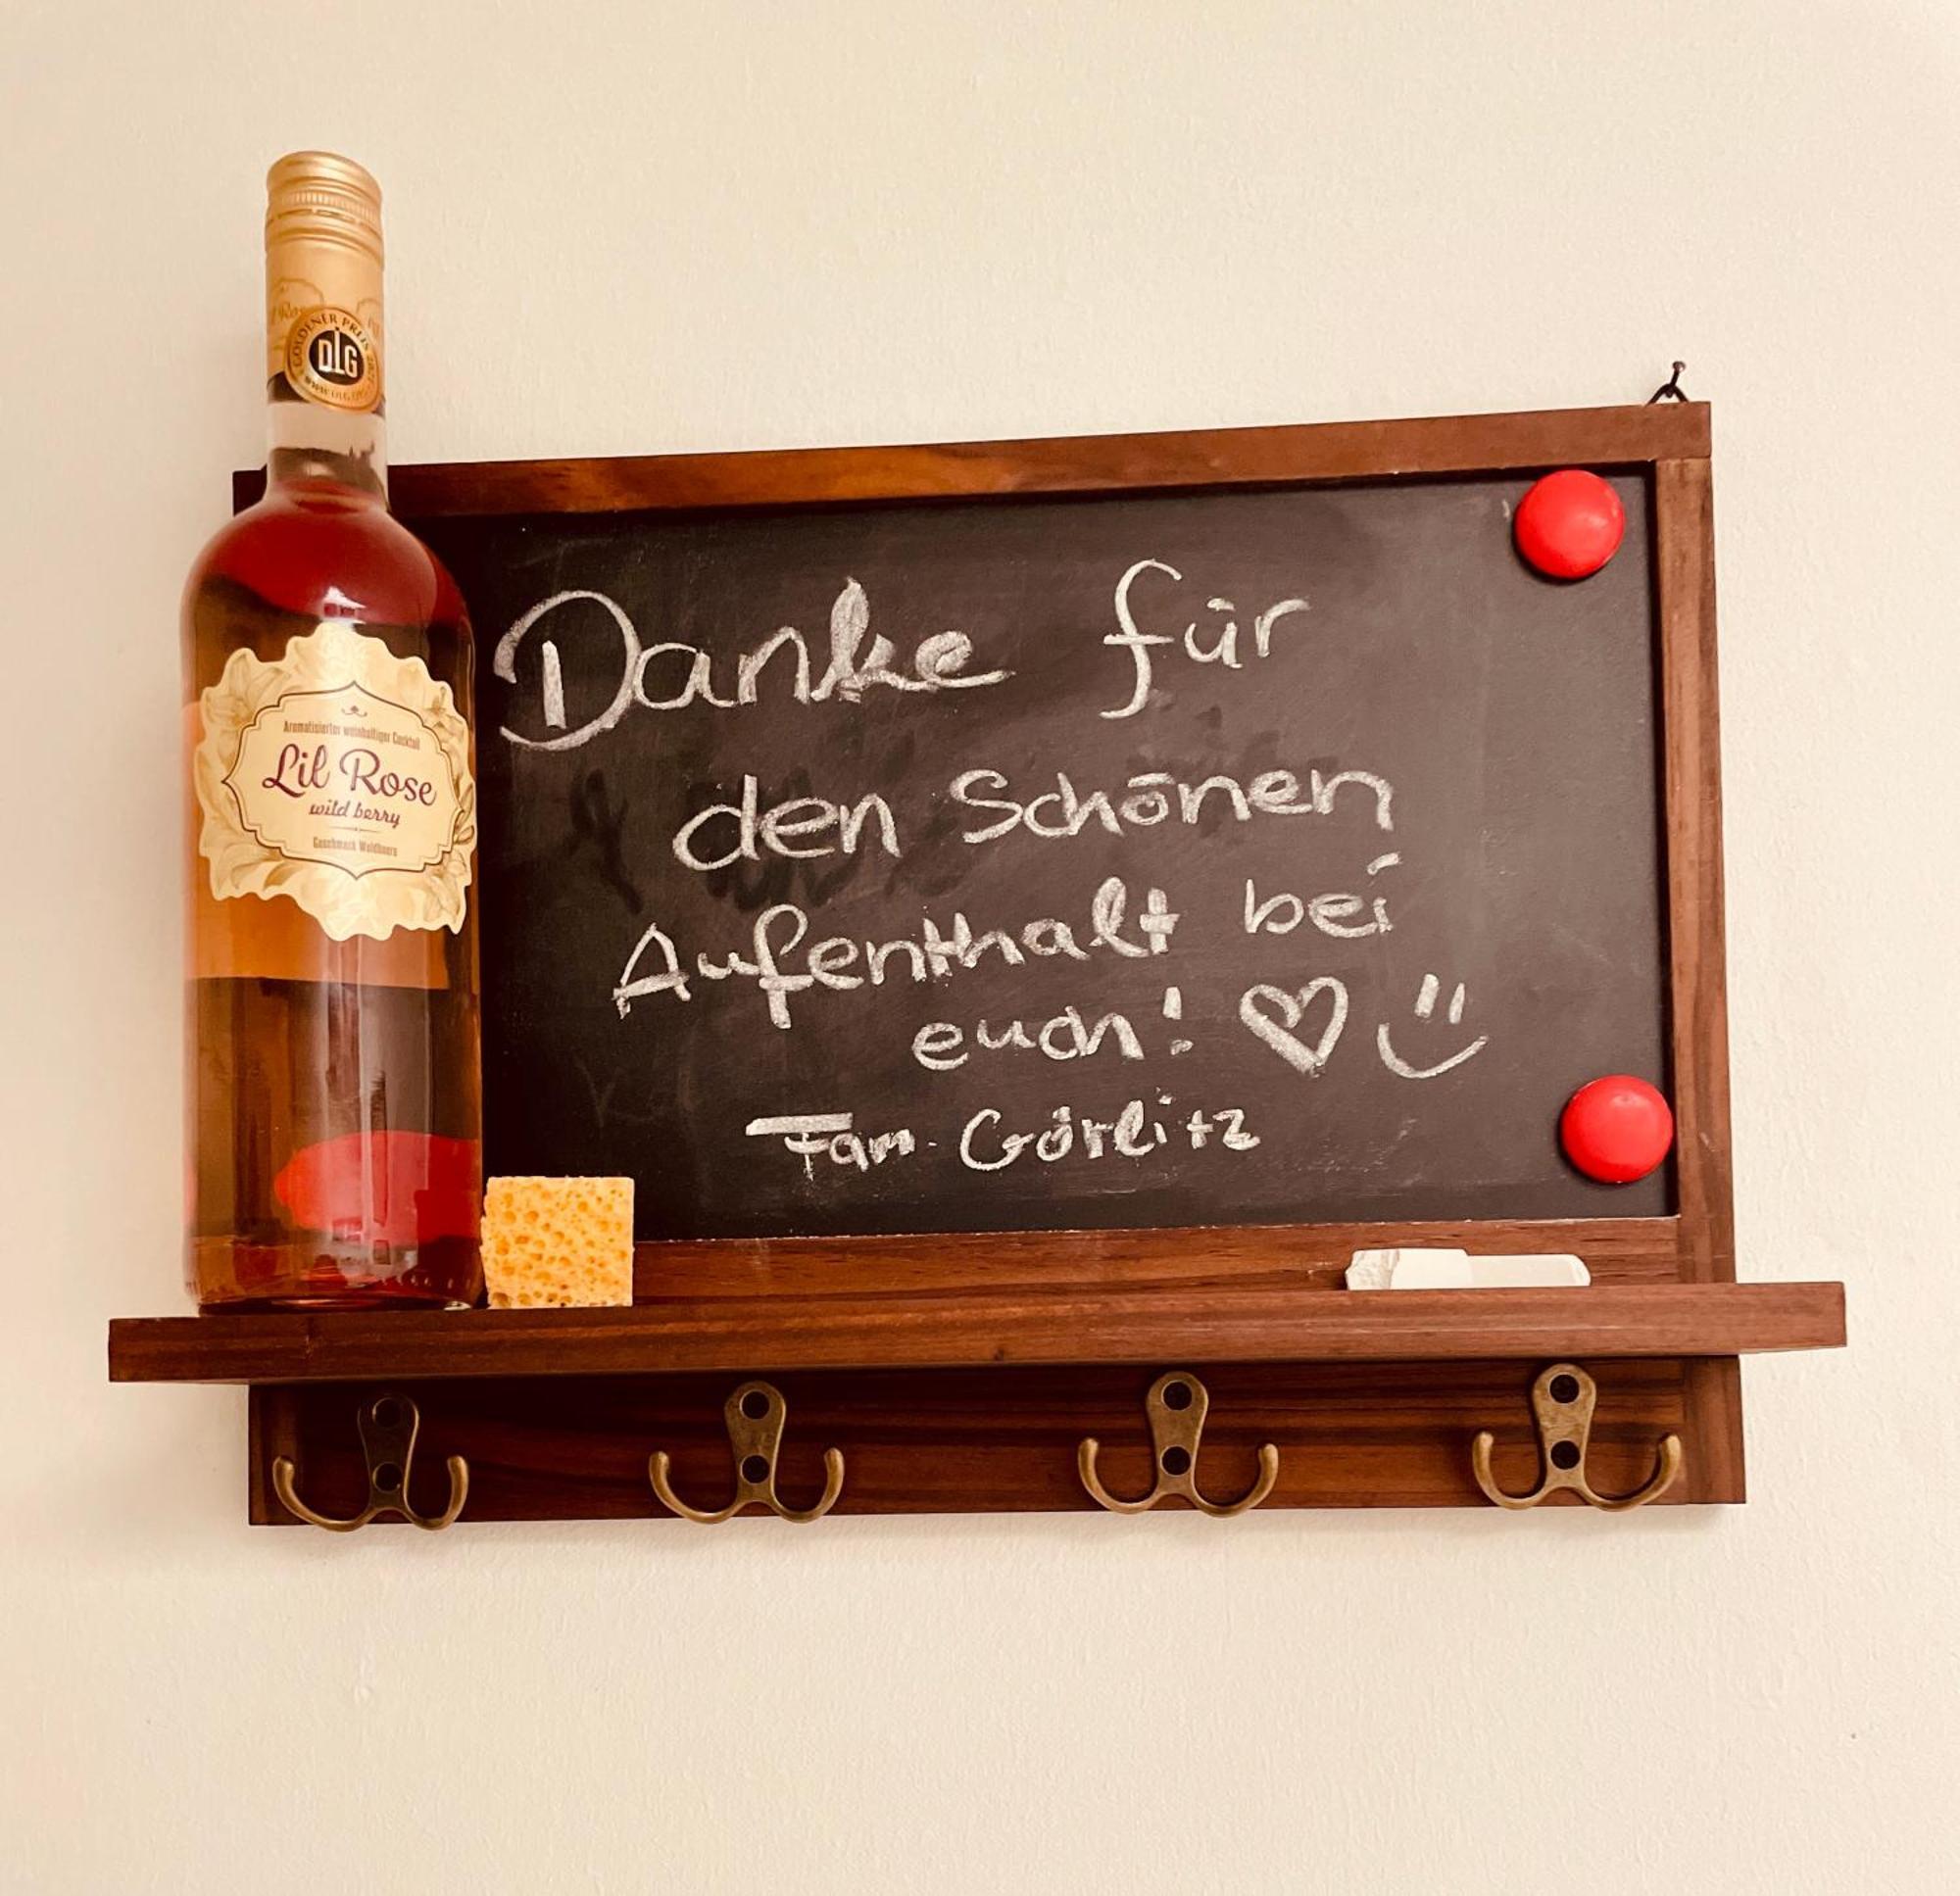 GOLDENER PREIS
DLG
Aromatisierter weinhaltiger Cocktail
Lil Rose
wild berry
Geschmack Waldbeere
Danke für
den Schönen
Aufenthalt bei
euch!
Fam. Görlitz